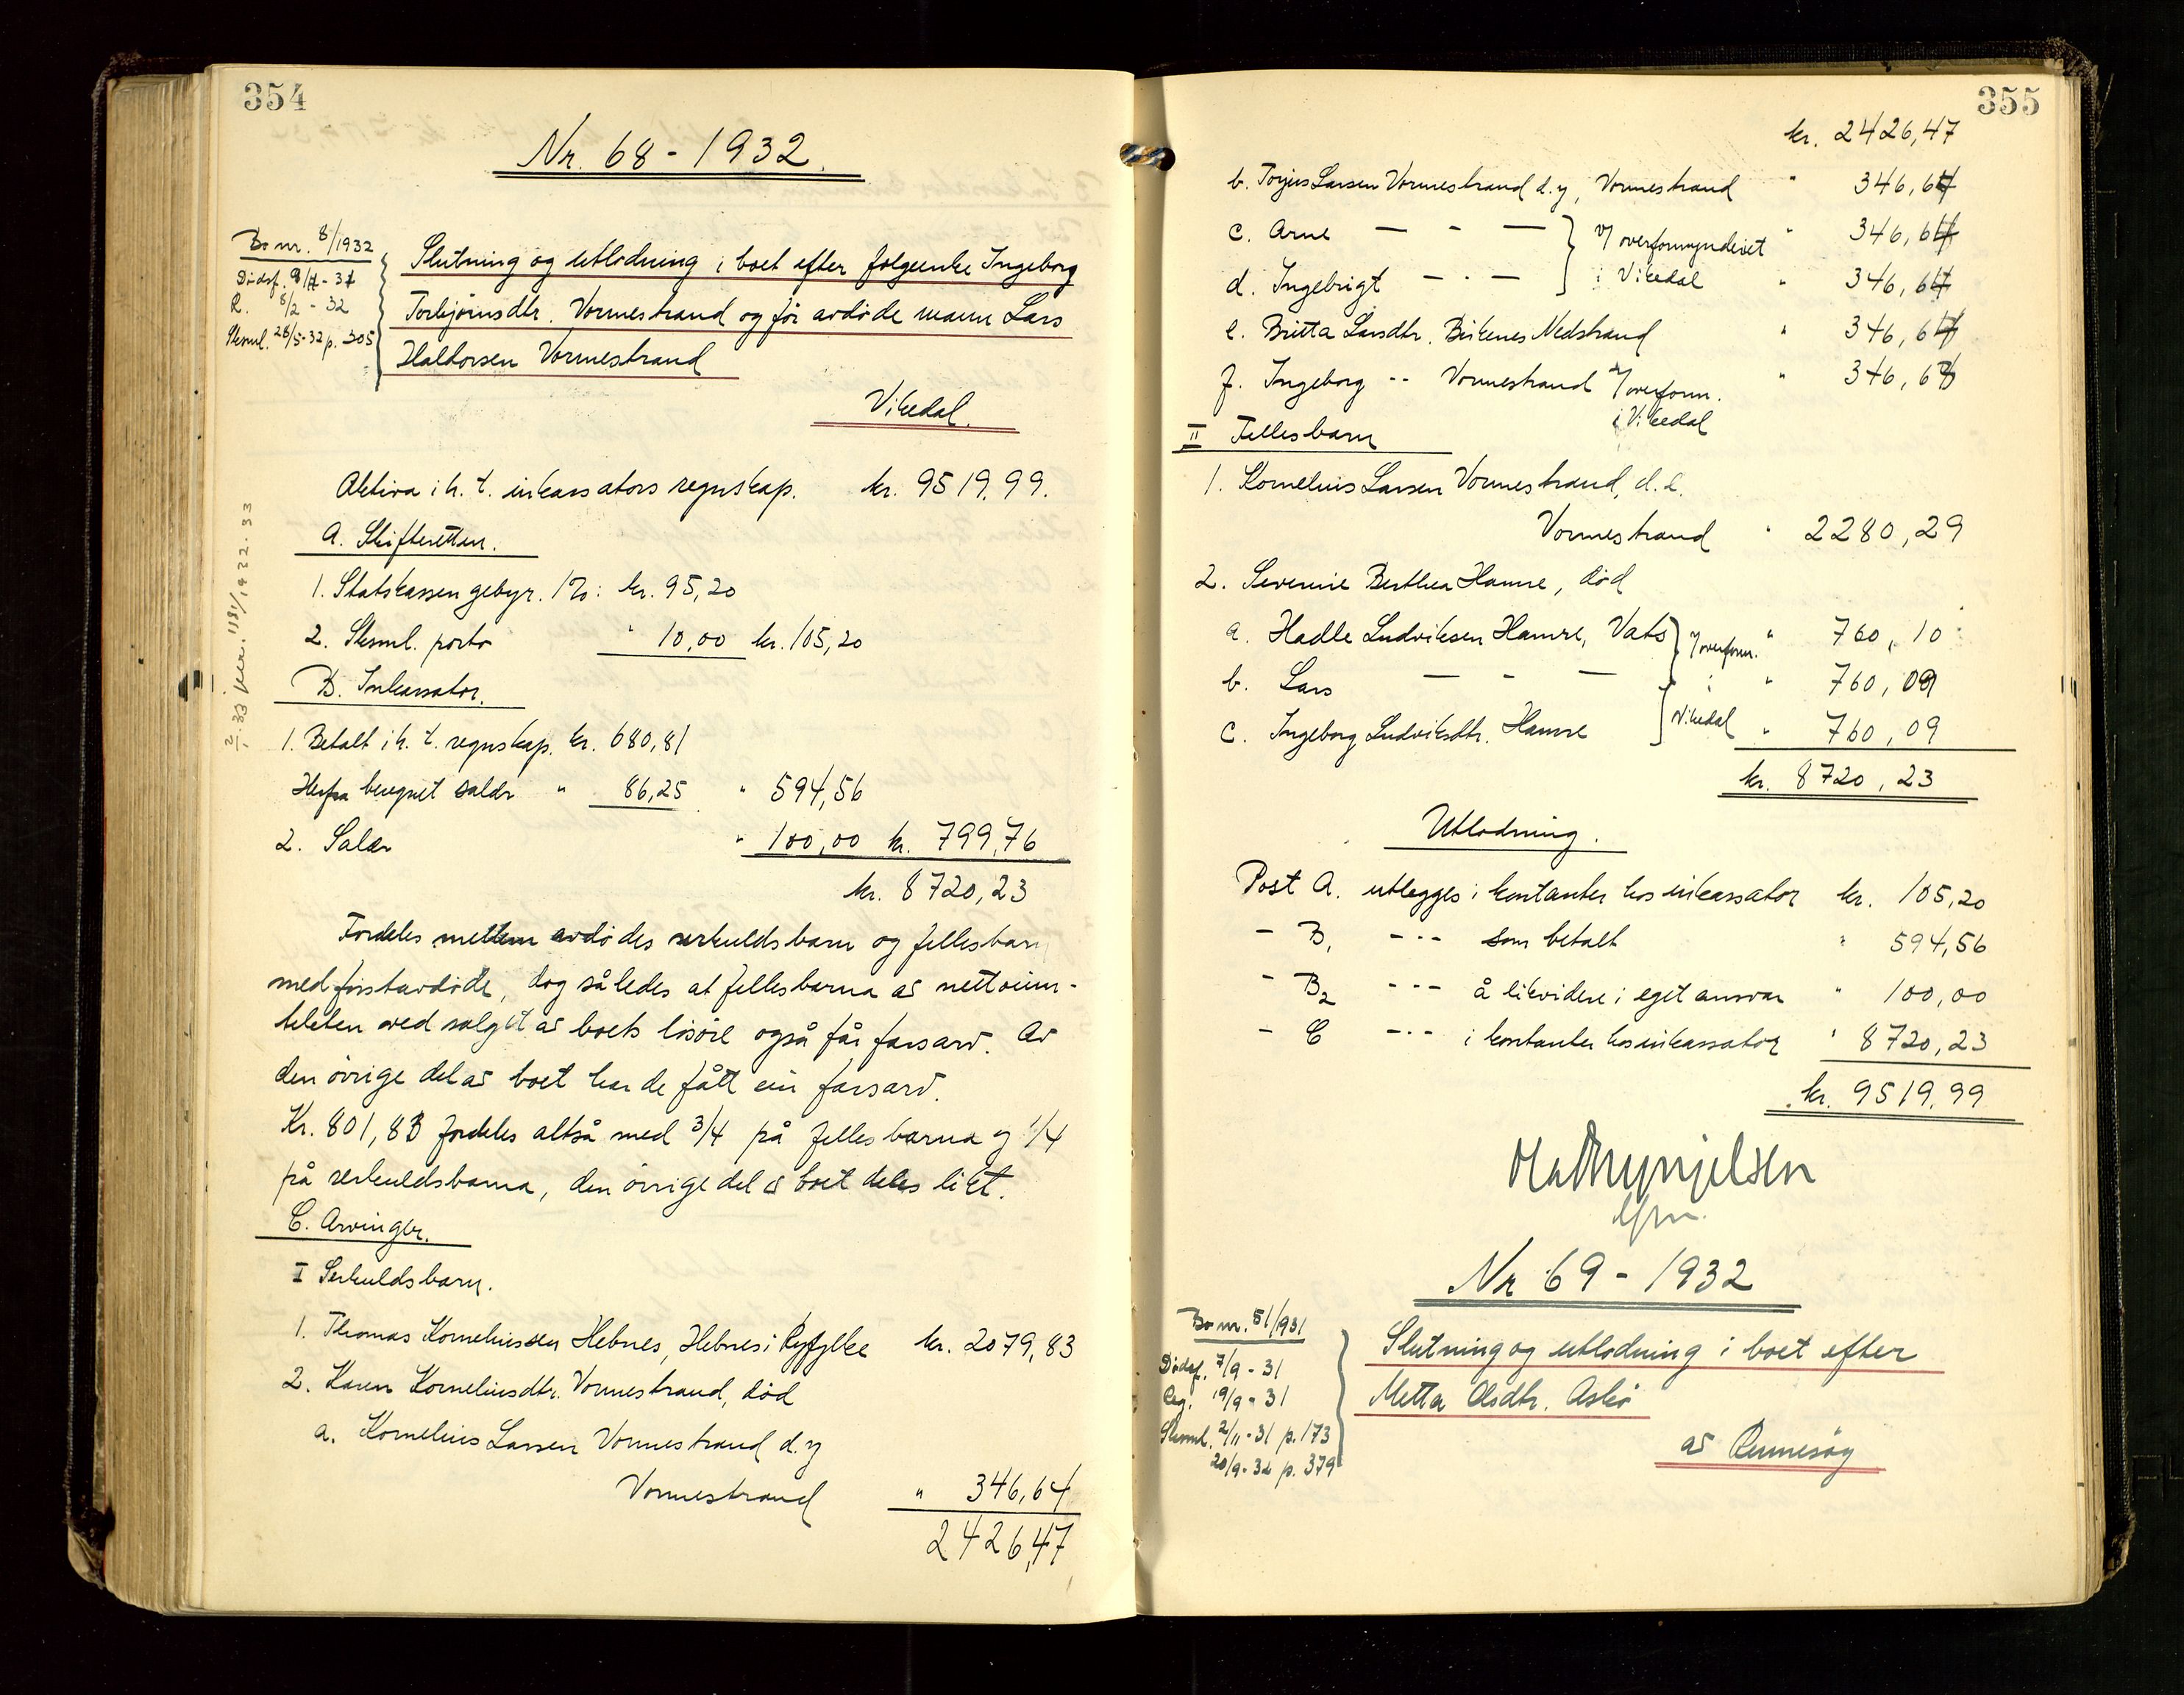 354
Nr. 68 - 1932.
Bo nr. 8/1932
Dødsf. 9/4 - 31
R. 8/2 - 32
Skml. 28/5-32 p. 305
Slutning og utlodning i boet efter følgeenke Ingeborg
Torbjørnsdtr. Vormestrand og før avdøde mann Lars
Haldorsen Vormestrand
Vikedal.
Aktiva i h. t. inkassators regnskap. kr. 9519.99.
A. Skifteretten.
1. Statskassen gebyr. 1%: kr. 95,20
2. Sksml. porto " 10,00 kr. 105,20
B. Inkassator.
1. Betalt i h. t. regnskap. kr. 680,81
Herfra beregnet salær " 86,25 " 594,56
2. Salær " 100,00 kr. 799,76
kr. 8720,23
Fordeles mellem avdødes serkuldsbarn og fellesbarn
med førstavdøde, dog således at fellesbarna av nettoinn-
tekten ved salget av boets løsøre også får farsarv. Av
den øvrige del av boet har de fått sin farsarv.
Kr. 801,83 fordeles altså med 3/4 på fellesbarna og 1/4
på serkuldsbarna, den øvrige del av boet deles likt.
C. Arvinger.
I Serkuldsbarn.
1. Thomas Korneliussen Hebnes, Hebnes i Ryfylke kr. 2079,83
2. Karen Korneliusdtr. Vormestrand, død
a. Kornelius Larsen Vormestrand d. y
Vormestrand " 346,64
2426,47
355
kr. 2426,47
b. Torjus Larsen Vormestrand d. y, Vormestrand " 346,64
c. Arne — - — } v/ overformynderiet " 346,64
d. Ingebrigt — - — } i Vikedal " 346,64
e. Britta Larsdtr. Birkenes Nedstrand " 346,64
f. Ingeborg -- Vormestrand v/ overform. " 346,63
i Vikedal
II Fellesbarn
1. Kornelius Larsen Vormestrand, d. e.
Vormestrand " 2280,29
2. Severine Berthea Hamre, død
a. Hadle Ludviksen Hamre, Vats } v/ overform. " 760,10
b. Lars — - — i " 760,09
c. Ingeborg Ludviksdtr. Hamre } Vikedal " 760,09
kr. 8720,23
Utlodning.
Post A. utlegges i kontanter hos inkassator kr. 105,20
- B, - - - som betalt " 594,56
- B2 - - - å likvidere i eget ansvar " 100,00
- C - - - i kontanter hos inkassator " 8720,23
kr. 9519,99
Nr 69 - 1932
Bo nr. 51/1931
Dødsf. 7/9 - 31
Reg. 19/9 - 31
Sksml. 2/11 - 31 p. 173
20/9 - 32 p. 379
Slutning og utlodning i boet efter
Metta Olsdtr. Askø
av Rennesøy